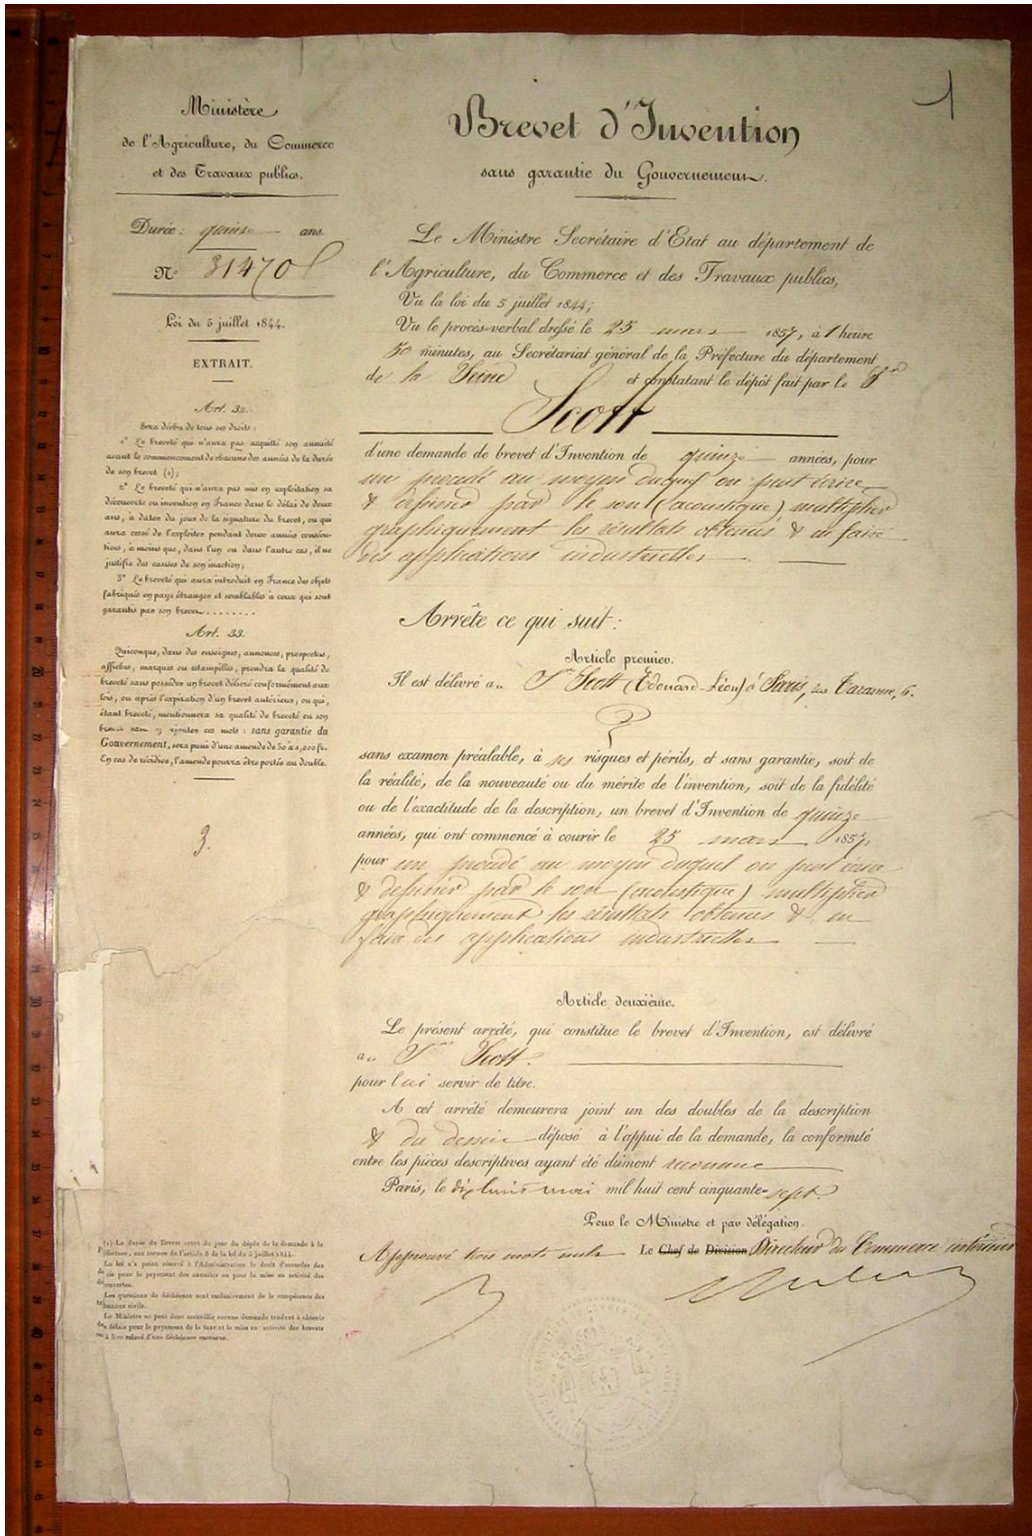 1
Ministère
de l'Agriculture, du Commerce
et des Travaux publics.
Durée: quinze ans.
N° 31470
Loi du 5 juillet 1844.
EXTRAIT.
Art. 32.
Sera déchu de tous ses droits:
1° Le breveté qui n'aura pas acquitté son annuité
avant le commencement de chacune des années de la durée
de son brevet (1);
2° Le breveté qui n'aura pas mis en exploitation sa
découverte ou invention en France dans le délai de deux
ans, à dater du jour de la signature du brevet, ou qui
aura cessé de l'exploiter pendant deux années consécu-
tives, à moins que, dans l'un ou dans l'autre cas, il ne
justifie des causes de son inaction;
3° Le breveté qui aura introduit en France des objets
fabriqués en pays étranger et semblables à ceux qui sont
garantis par son brevet........
Art. 33.
Quiconque, dans des enseignes, annonces, prospectus,
affiches, marques ou estampilles, prendra la qualité de
breveté sans posséder un brevet délivré conformément aux
lois, ou après l'expiration d'un brevet antérieur; ou qui,
étant breveté, mentionnera sa qualité de breveté ou son
brevet sans y ajouter ces mots: sans garantie du
Gouvernement, sera puni d'une amende de 50 à 1,000 fr.
En cas de récidive, l'amende pourra être portée au double.
3.
(1) La durée du Brevet court du jour du dépôt de la demande à la
Préfecture, aux termes de l'article 8 de la loi du 5 juillet 1844.
La loi n'a point réservé à l'Administration le droit d'accorder des
délais pour le payement des annuités ou pour la mise en activité des
découvertes.
Les questions de déchéance sont exclusivement de la compétence des
tribunaux civils.
Le Ministre ne peut donc accueillir aucune demande tendant à obtenir
des délais pour le payement de la taxe et la mise en activité des brevets
ou à être relevé d'une déchéance encourue.
Brevet d'Invention
sans garantie du Gouvernement.
Le Ministre Secrétaire d'Etat au département de
l'Agriculture, du Commerce et des Travaux publics,
Vu la loi du 5 juillet 1844;
Vu le procès-verbal dressé le 25 mars 1857, à 1 heure
50 minutes, au Secrétariat général de la Préfecture du département
de la Seine et constatant le dépôt fait par le Sr
Scott
d'une demande de brevet d'Invention de quinze années, pour
un procédé au moyen duquel on peut écrire
& dessiner par le son (acoustique) multiplier
graphiquement les résultats obtenus & en faire
des applications industrielles
Arrête ce qui suit:
Article premier.
Il est délivré au Sr Scott (Edouard-Léon) à Paris, rue Taranne, 6.
sans examen préalable, à ses risques et périls, et sans garantie, soit de
la réalité, de la nouveauté ou du mérite de l'invention, soit de la fidélité
ou de l'exactitude de la description, un brevet d'Invention de quinze
années, qui ont commencé à courir le 25 mars 1857,
pour un procédé au moyen duquel on peut écrire
& dessiner par le son (acoustique) multiplier
graphiquement les résultats obtenus & en
faire des applications industrielles
Article deuxième.
Le présent arrêté, qui constitue le brevet d'Invention, est délivré
au Sr Scott.
pour lui servir de titre.
A cet arrêté demeurera joint un des doubles de la description
& du dessin déposé à l'appui de la demande, la conformité
entre les pièces descriptives ayant été dûment reconnue
Paris, le mai mil huit cent cinquante-sept.
Pour le Ministre et par délégation.
Approuvé trois mots nuls Le Chef de Division Directeur du Commerce intérieur